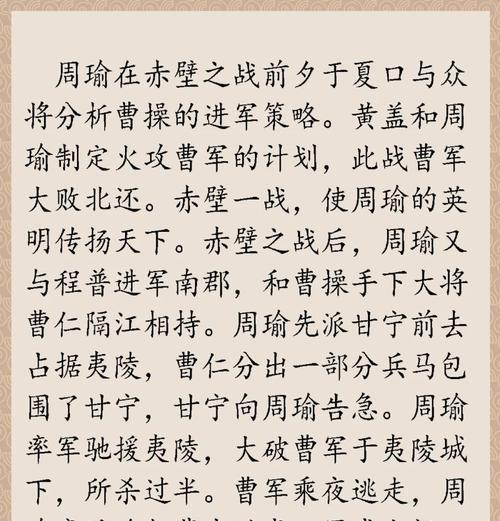 周瑜在赤壁之战前夕于夏口与众
将分析曹操的进军策略。黄盖和周
瑜制定火攻曹军的计划，此战曹军
大败北还。赤壁一战，使周瑜的英
明传扬天下。赤壁之战后，周瑜又
与程普进军南郡，和曹操手下大将
曹仁隔江相持。周瑜先派甘宁前去
占据夷陵，曹仁分出一部分兵马包
围了甘宁，甘宁向周瑜告急。周瑜
率军驰援夷陵，大破曹军于夷陵城
下，所杀过半。曹军乘夜逃走，周